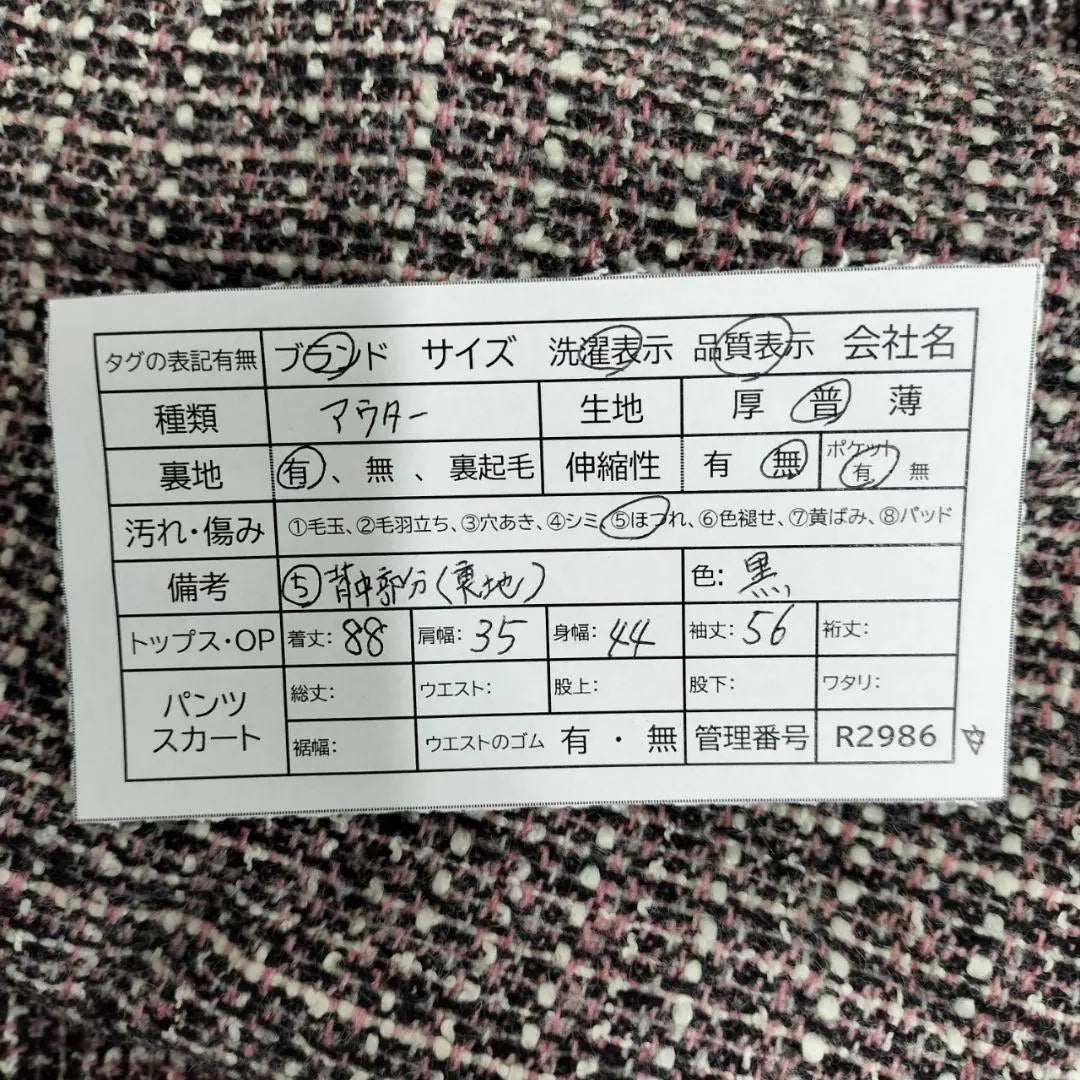 タグの表記有無 ブランド サイズ 洗濯表示 品質表示 会社名
種類 アウター 生地 厚 普 薄
裏地 有、無、裏起毛 伸縮性 有 無 ポケット 有 無
汚れ・傷み ①毛玉、②毛羽立ち、③穴あき、④シミ、⑤ほつれ、⑥色褪せ、⑦黄ばみ、⑧パッド
備考 ⑤背中部分(裏地) 色: 黒
トップス・OP 着丈: 88 肩幅: 35 身幅: 44 袖丈: 56 裄丈:
パンツ スカート 総丈: ウエスト: 股上: 股下: ワタリ:
裾幅: ウエストのゴム 有・無 管理番号 R2986